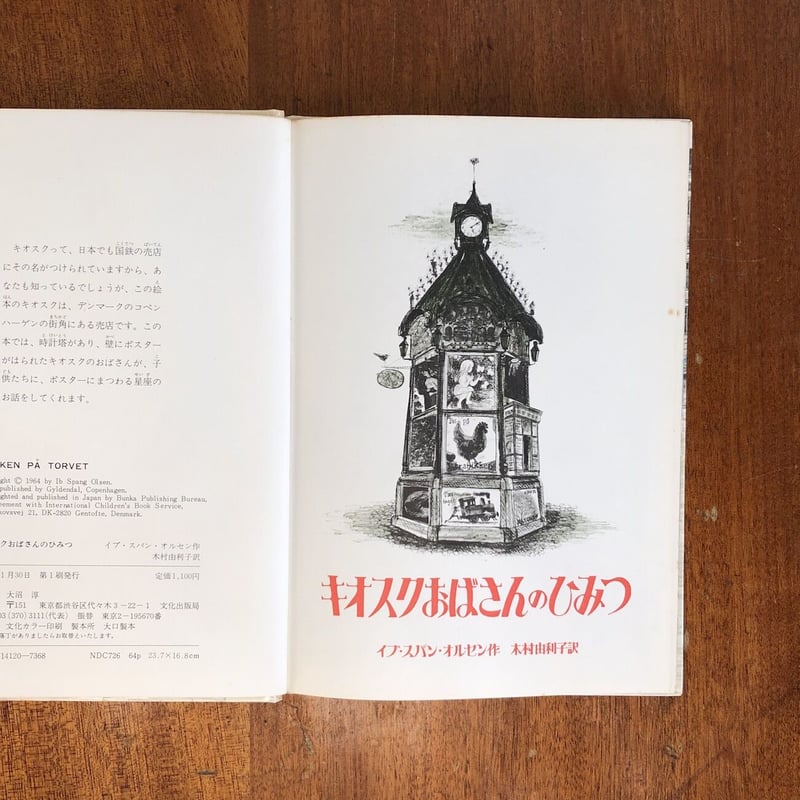 キオスクって、日本でも国鉄の売店
にその名がつけられていますから、あ
なたも知っているでしょうが、この絵
本のキオスクは、デンマークのコペン
ハーゲンの街角にある売店です。この
本では、時計塔があり、壁にポスター
がはられたキオスクのおばさんが、子
供たちに、ポスターにまつわる星座の
お話をしてくれます。
KEN PÅ TORVET
ght © 1964 by Ib Spang Olsen.
published by Gyldendal, Copenhagen.
ghted and published in Japan by Bunka Publishing Bureau,
eement with International Children's Book Service,
kovvej 21, DK-2820 Gentofte, Denmark.
クおばさんのひみつ イブ・スパン・オルセン作
木村由利子訳
1月30日 第1刷発行 定価1,100円
大沼 淳
〒151 東京都渋谷区代々木3-22-1 文化出版局
03(370)3111(代表) 振替 東京2-195670番
文化カラー印刷 製本所 大口製本
落丁がありましたらお取替えいたします。
14120-7368 NDC726 64p 23.7×16.8cm
キオスクおばさんのひみつ
イブ・スパン・オルセン作 木村由利子訳